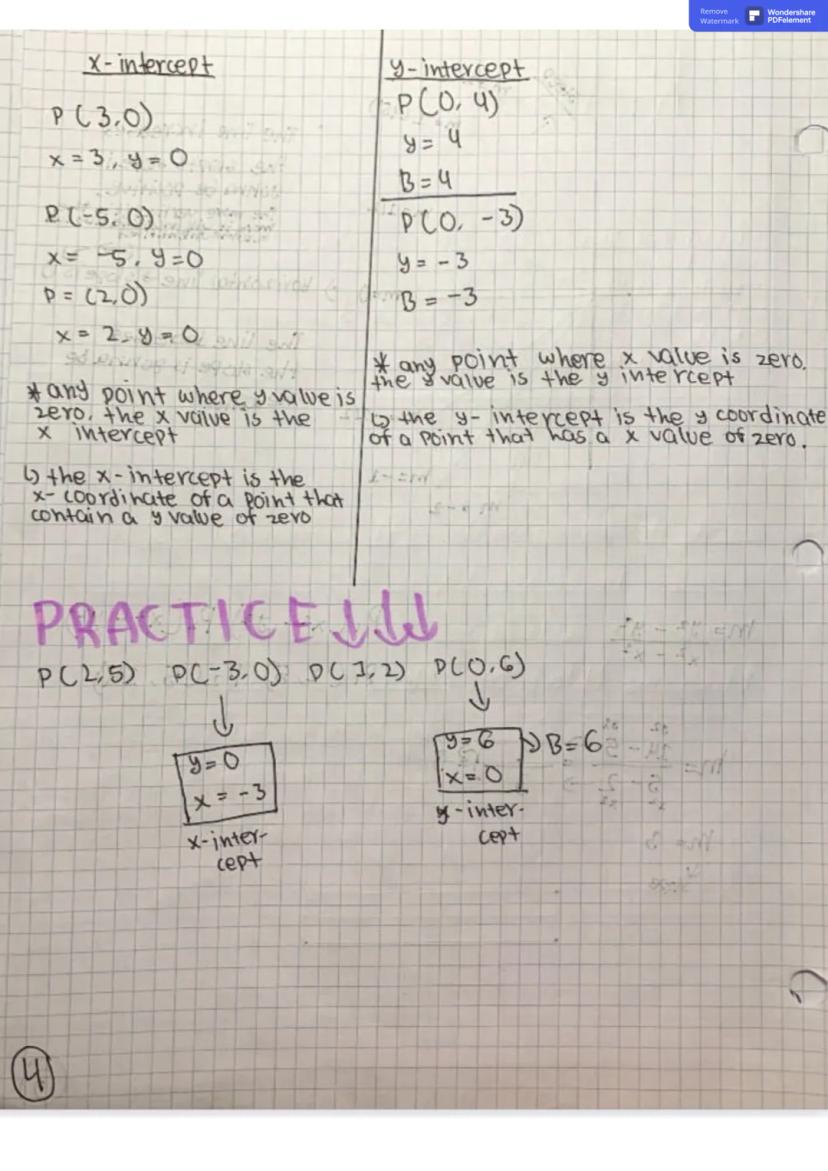 Remove
Watermark
Wondershare
PDFelement
x-intercept
P(3,0)
x = 3, y = 0
P(-5,0)
x = -5, y=0
P = (2,0)
x = 2, y = 0
* any point where y value is
zero, the x value is the
x intercept
↳ the x-intercept is the
x-coordinate of a point that
contain a y value of zero
y-intercept
P(0, 4)
y = 4
B = 4
P(0, -3)
y = -3
B = -3
* any point where x value is zero.
the y value is the y intercept
↳ the y-intercept is the y coordinate
of a point that has a x value of zero.
PRACTICE ↓↓↓
P(2,5) P(-3,0) P(1,2) P(0,6)
y = 0
x = -3
x-inter-
cept
y = 6 → B = 6
x = 0
y-inter-
cept
4